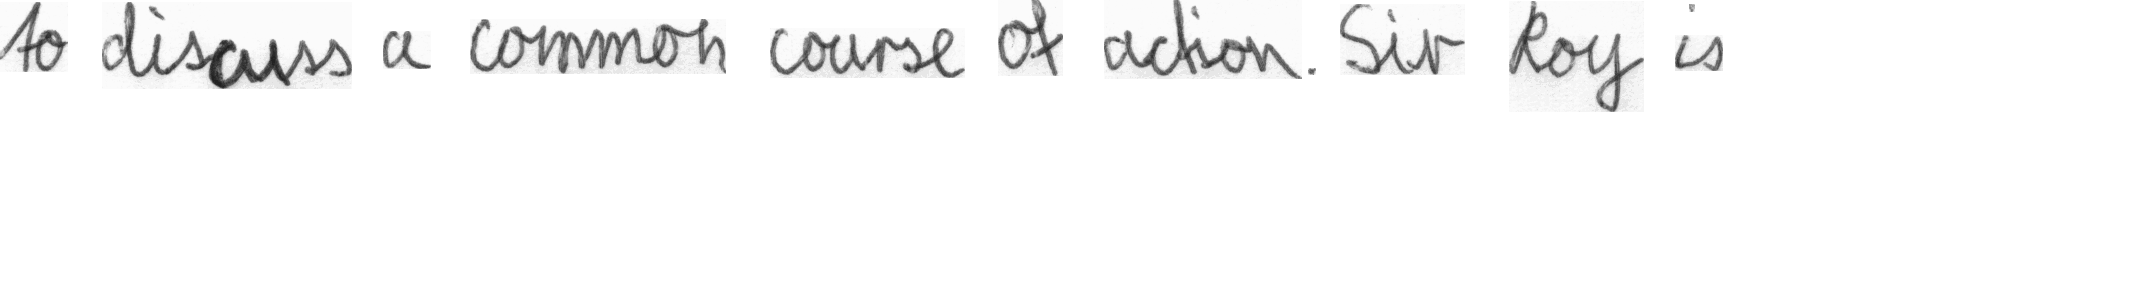 to discuss a common course of action. Sir Roy is